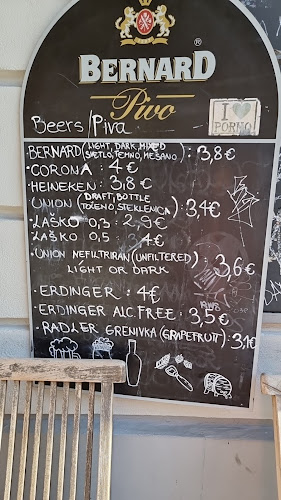 BERNARD®
Pivo
Beers/Piva
I ♥
PORNO
·BERNARD (LIGHT, DARK, MIXED
SVETLO, TEMNO, MEŠANO) : 3,8€
·CORONA : 4€
·HEINEKEN : 3,8€
·UNION (DRAFT, BOTTLE
TOČENO, STEKLENICA) : 3,4€
·LAŠKO 0,3 : 2,9€
·LAŠKO 0,5 : 3,4€
·UNION NEFILTRIRAN (UNFILTERED)
LIGHT OR DARK : 3,6€
·ERDINGER : 4€
·ERDINGER ALC. FREE : 3,5€
·RADLER GRENIVKA (GRAPEFRUIT) : 3,1€